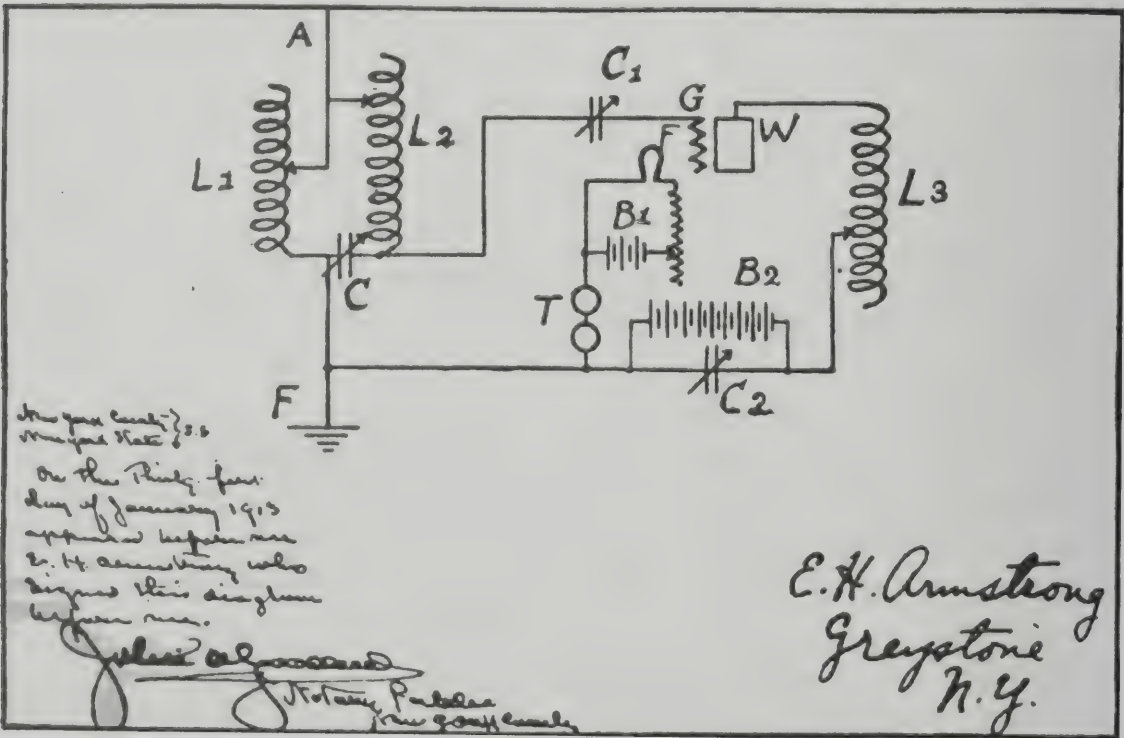 A
L1
L2
C
C1
G
F
W
B1
L3
T
B2
C2
F
New York County } S.S
New York State }
On the Thirty first
day of January 1913
appeared before me
E. H. Armstrong who
signed this diagram
before me.
Notary Public
New York County
E.H. Armstrong
Greystone
N.Y.